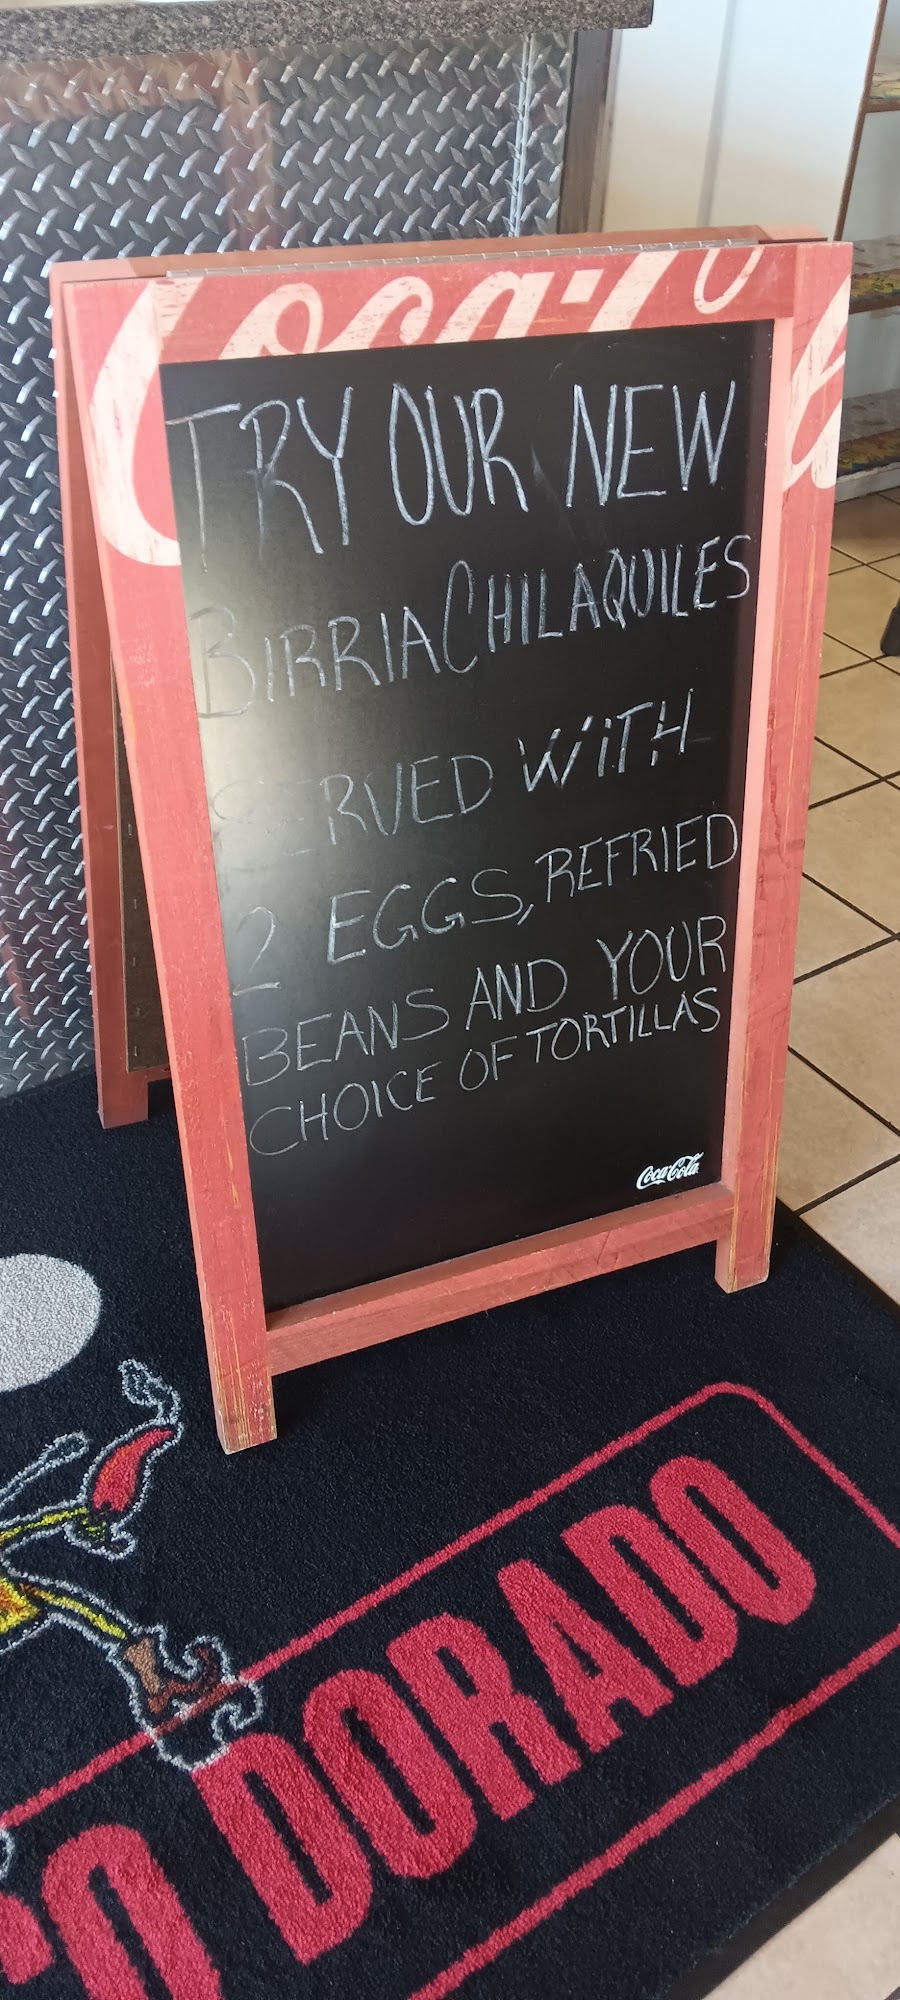 Coca-Co
TRY OUR NEW
BIRRIA CHILAQUILES
SERVED WITH
2 EGGS, REFRIED
BEANS AND YOUR
CHOICE OF TORTILLAS
Coca-Cola
DORADO